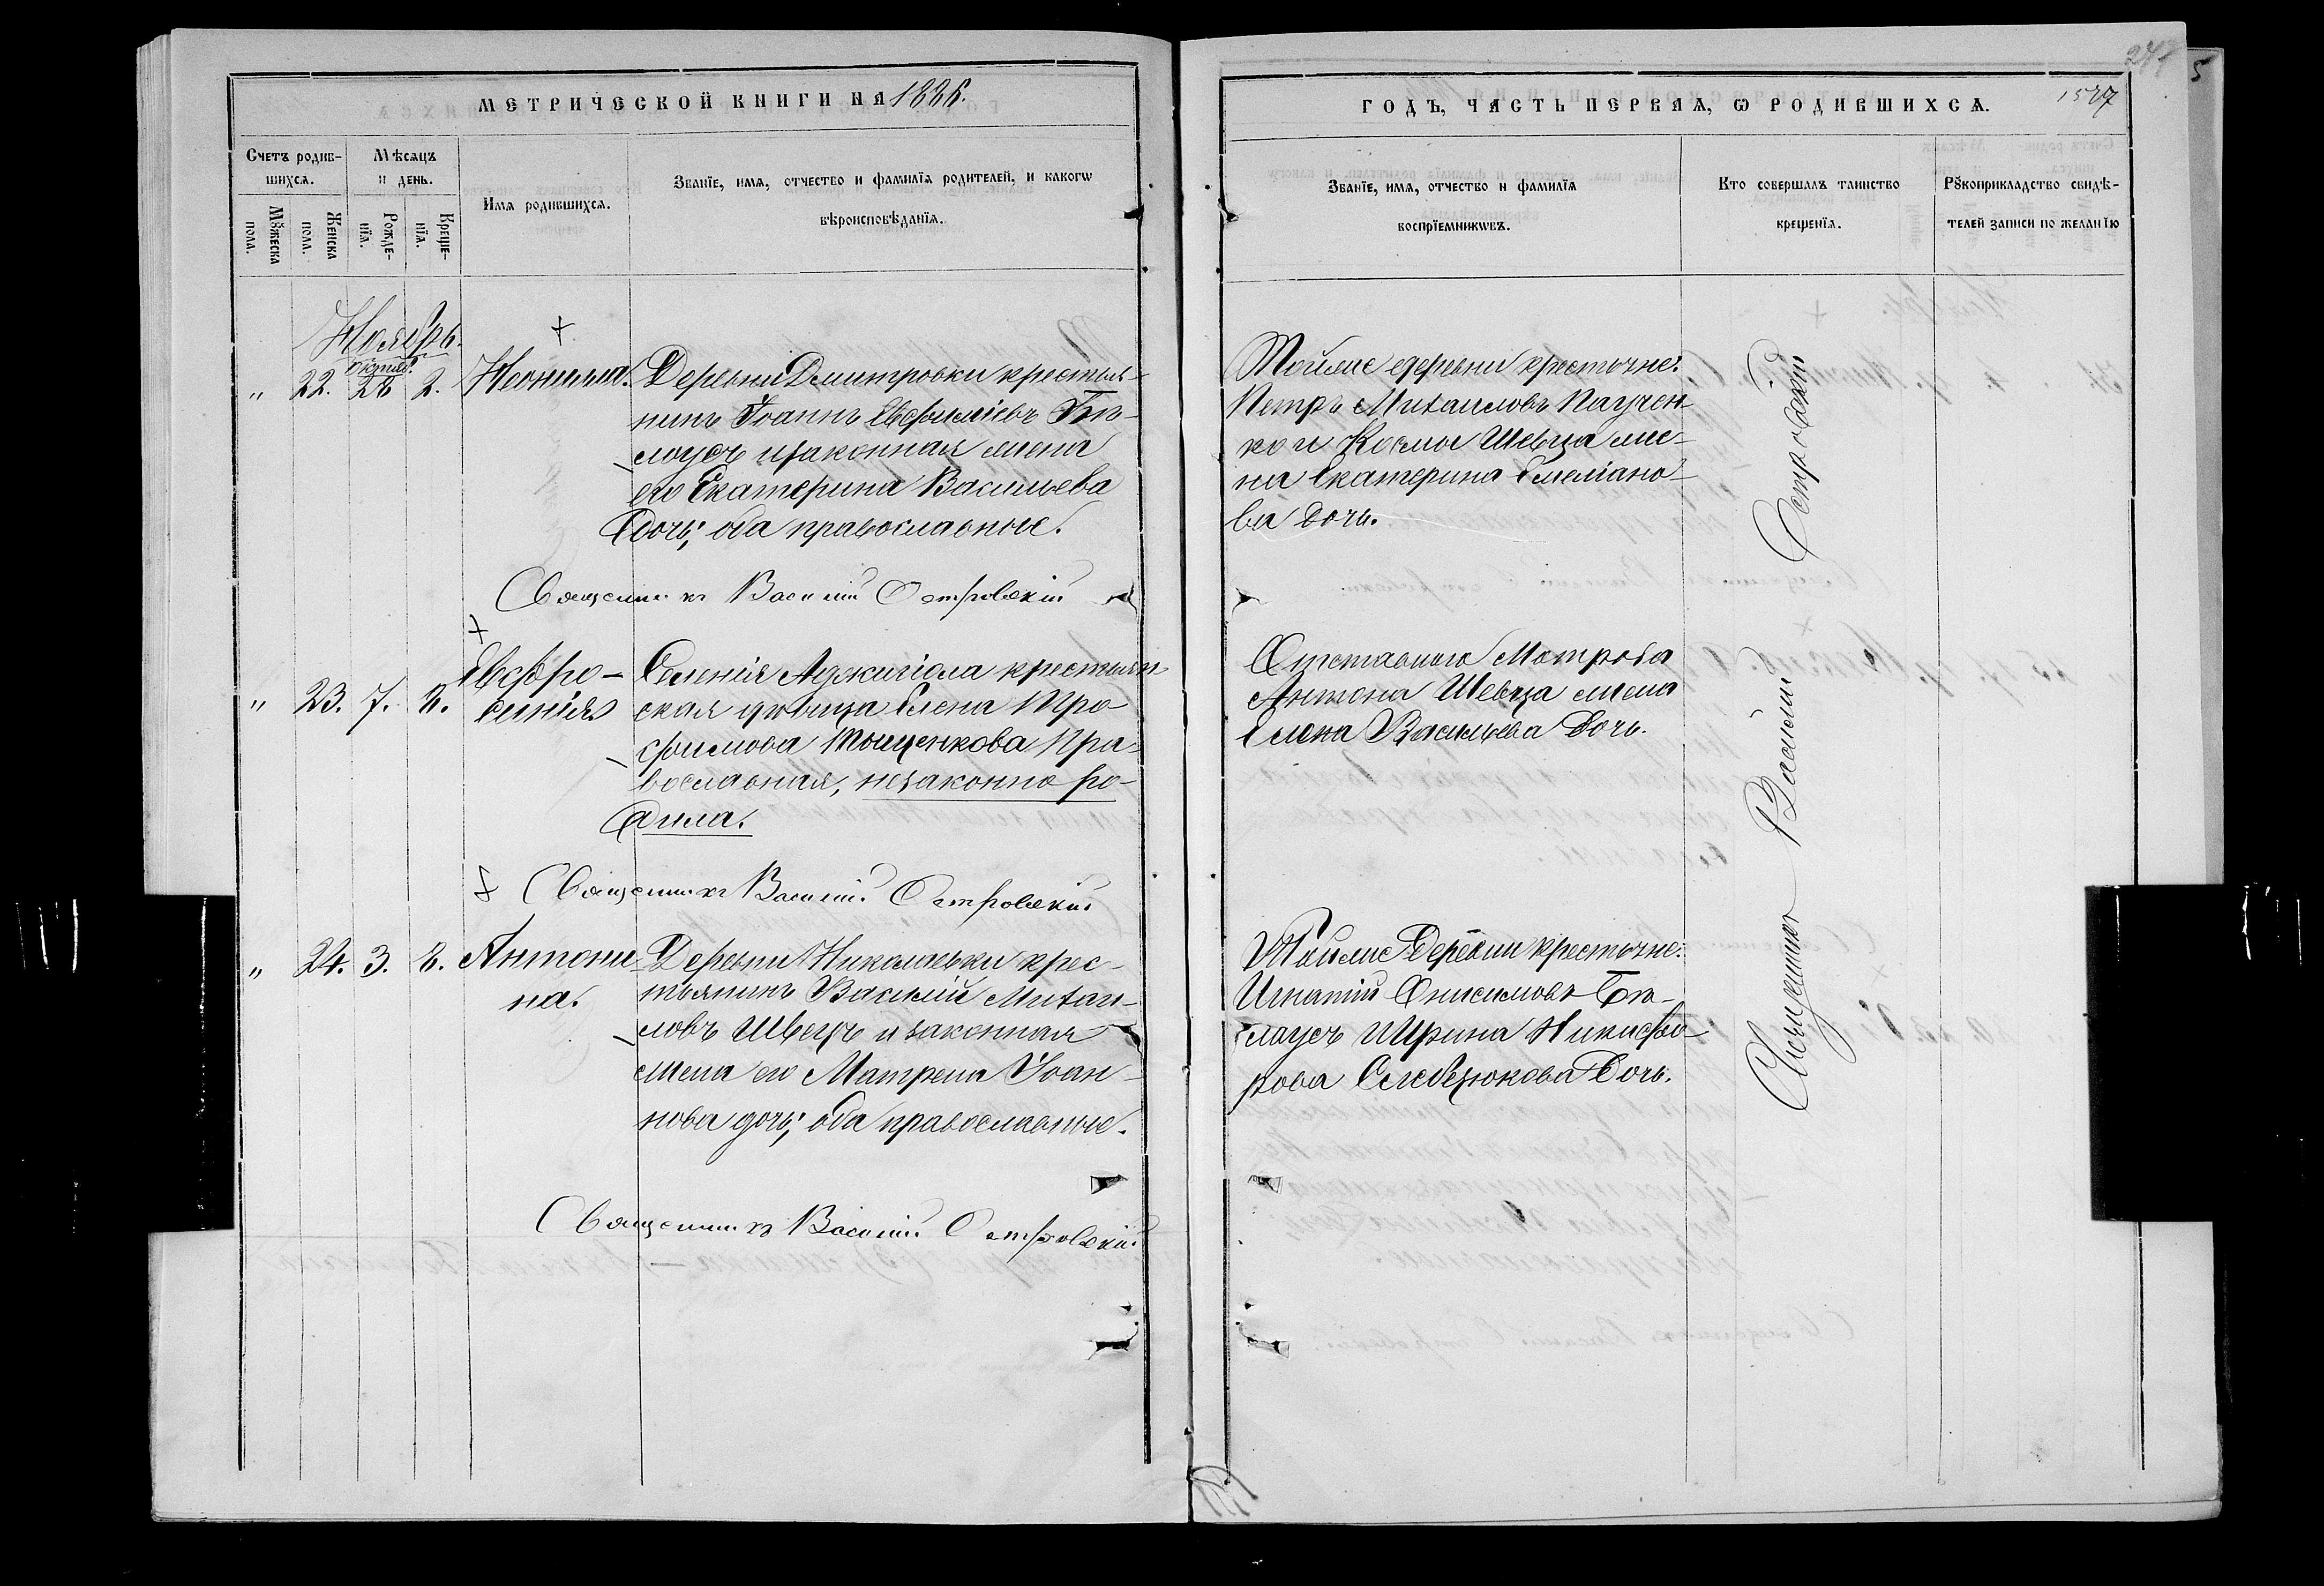 МЕТРИЧЕСКОЙ КНИГИ НА 1886.
Счетъ родив-
шихсѧ.
Мѣсѧцъ
и день.
Мꙋжеска
пола.
Женска
пола.
Рожде-
нїѧ.
Креще-
нїѧ.
Имѧ родившихсѧ.
Званїе, имѧ, отчество и фамилїѧ родителей, и какогѡ
вѣроисповѣданїѧ.
Ноябрь.
Октяб.
" 22. 26 2. Неонила. Деревни Дмитровки крестья-
нинъ Іоаннъ Евфиміевъ Бѣ-
лоусъ и законная жена
его Екатерина Васильева
дочь; оба православные.
Священникъ Василій Островскій
" 23. 7. 8. Евсфро-
синія
Селенія Аджигіола крестьян-
ская дѣвица Елена Тро-
фимова Тыщенкова пра-
вославная, незаконно ро-
дила.
Священникъ Василій Островскій
" 24. 3. 8. Антони-
на.
Деревни Николаевки крес-
тьянинъ Василій Михаи-
ловъ Швецъ и законная
жена его Матрена Іоан-
нова дочь; оба православные.
Священникъ Василій Островскій
247 5
1527
ГОДЪ, ЧАСТЬ ПЕРВАѦ, Ѡ РОДИВШИХСѦ.
Званїе, имѧ, отчество и фамилїѧ
воспрїемникѡвъ.
Кто совершалъ таинство
крещенїѧ.
Рꙋкоприкладство свидѣ-
телей записи по желанїю
Тойже деревни крестьяне:
Петръ Михаиловъ Паучен-
ко и Космы Шевца же-
на Екатерина Емеліано-
ва дочь.
Отставного Матроса
Антона Шевца жена
Елена Васильева дочь.
Тойже деревни крестьяне:
Игнатій Онисимовъ Бѣ-
лоусъ и Ирина Никифо-
рова дочь.
Священникъ Василій Островскій